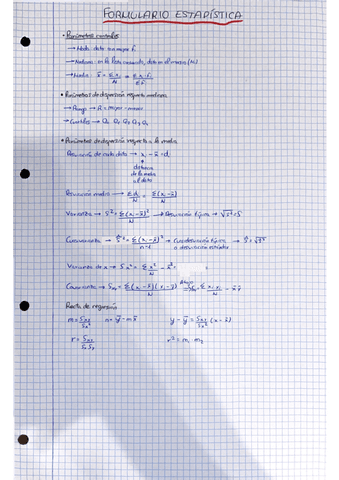 FORMULARIO ESTADÍSTICA
• Parámetros centrales
→ Moda: dato con mayor fi
→ Mediana: en la lista ordenada, dato en el medio (Me)
→ Media: x̄ = Σxi/N = Σxi·fi/Σfi
• Parámetros de dispersión respecto mediana
→ Rango → R = mayor - menor
→ Cuartiles → Q1
• Parámetros de dispersión respecto a la media
Desviación de cada dato → xi - x̄ = di
distancia
de la media
al dato
Desviación media → Σdi/N = Σ(xi-x̄)/N
Varianza → S² = Σ(xi-x̄)²/N → Desviación típica → √S² = S
Cuasivarianza → Ŝ² = Σ(xi-x̄)²/n-1 → Cuasidesviación típica → Ŝ = √Ŝ²
o desviación estándar
Varianza de x → Sx² = Σx²/N - x̄² =
Covarianza → Sxy = Σ(xi-x̄)(yi-ȳ)/N = Σxi·yi/N - x̄ȳ
Recta de regresión
m = Sxy/Sx² n = ȳ - m x̄ y - ȳ = Sxy/Sx² (x - x̄)
r = Sxy/Sx Sy r² = m1 m2